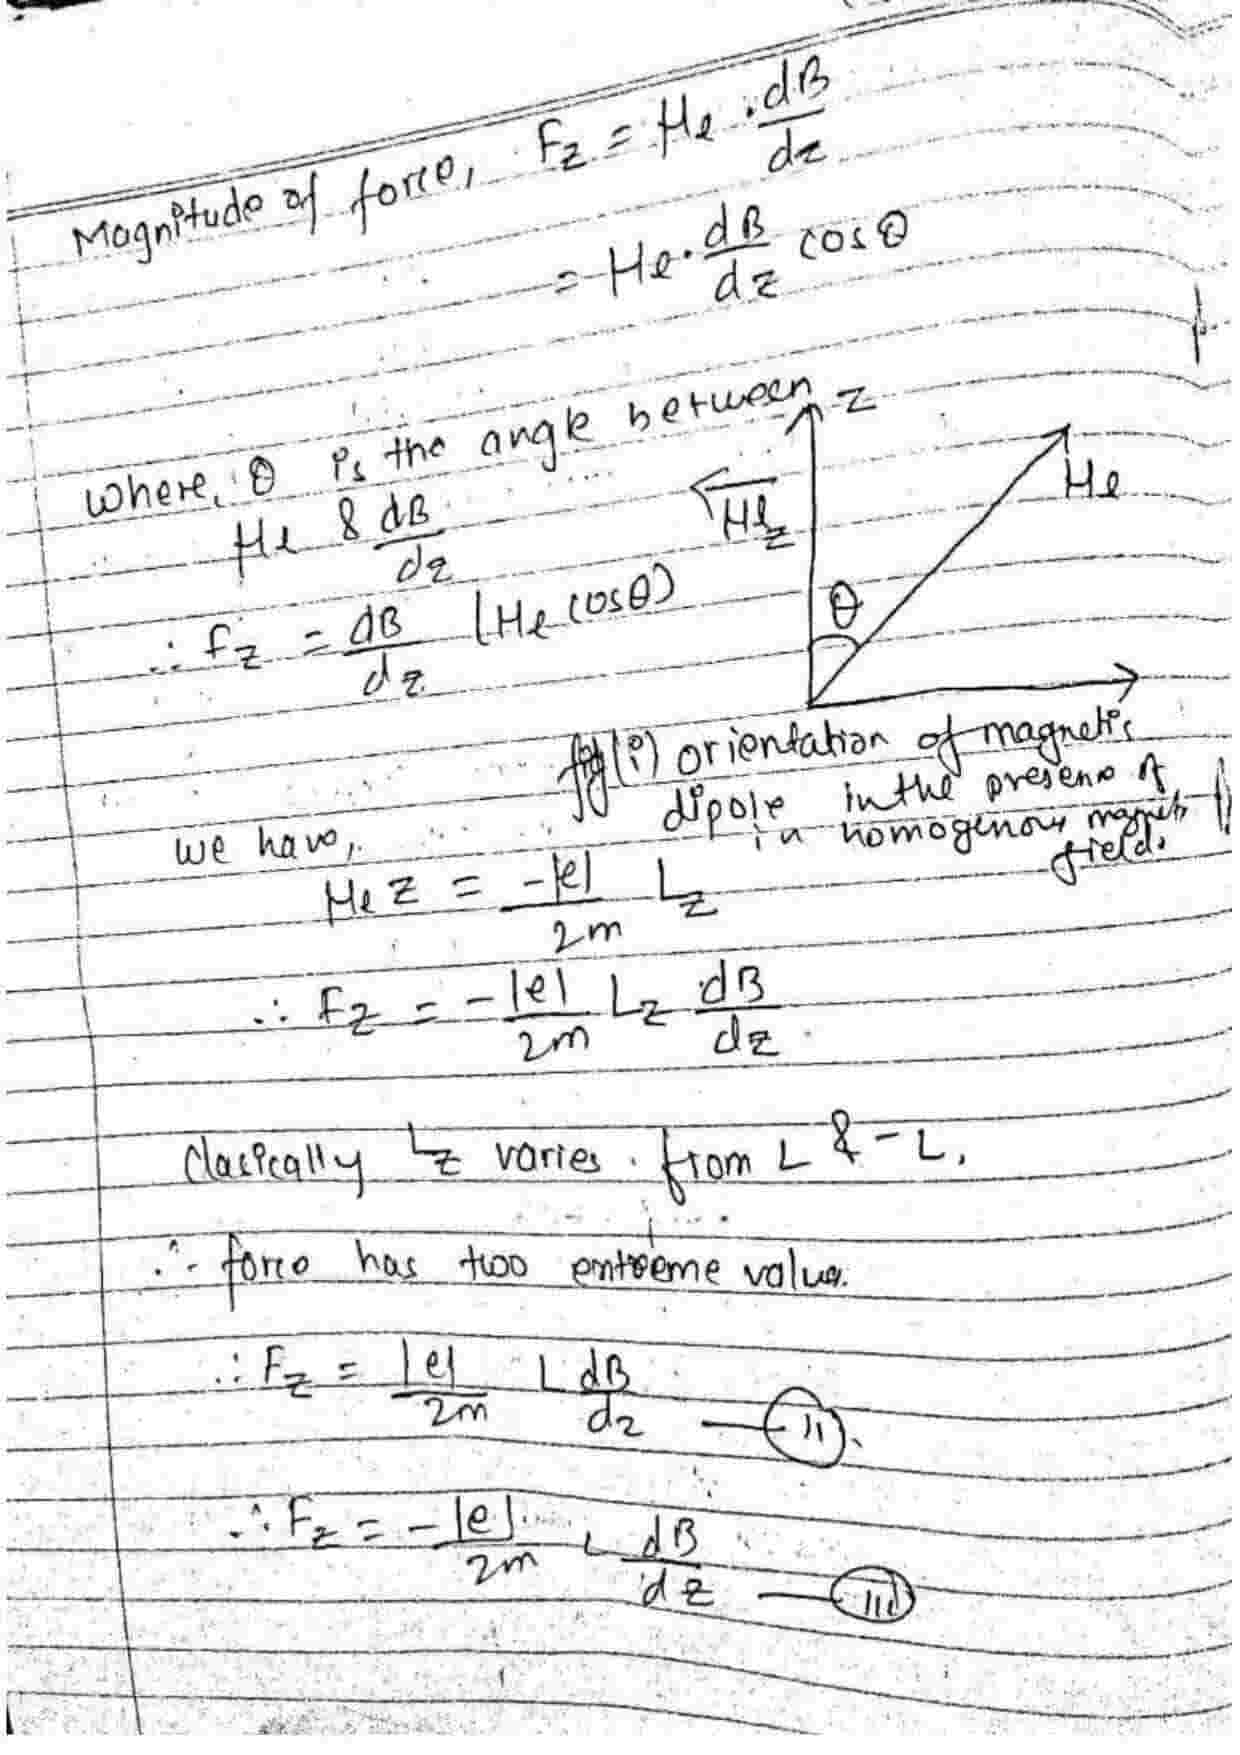 Magnitude of force, Fz = μe . dB/dz
= μe . dB/dz cosθ
where, θ is the angle between
μe & dB/dz
∴ Fz = dB/dz (μe cosθ)
Z
μe
μez
θ
fig(i) orientation of magnetic
dipole in the presence of
in homogenous magnetic
field.
we have,
μe z = -|e|/2m Lz
∴ Fz = -|e|/2m Lz dB/dz
Clasically Lz varies from L & -L.
∴ force has two extreme value.
∴ Fz = |e|/2m L dB/dz — (ii).
∴ Fz = -|e|/2m L dB/dz — (iii)